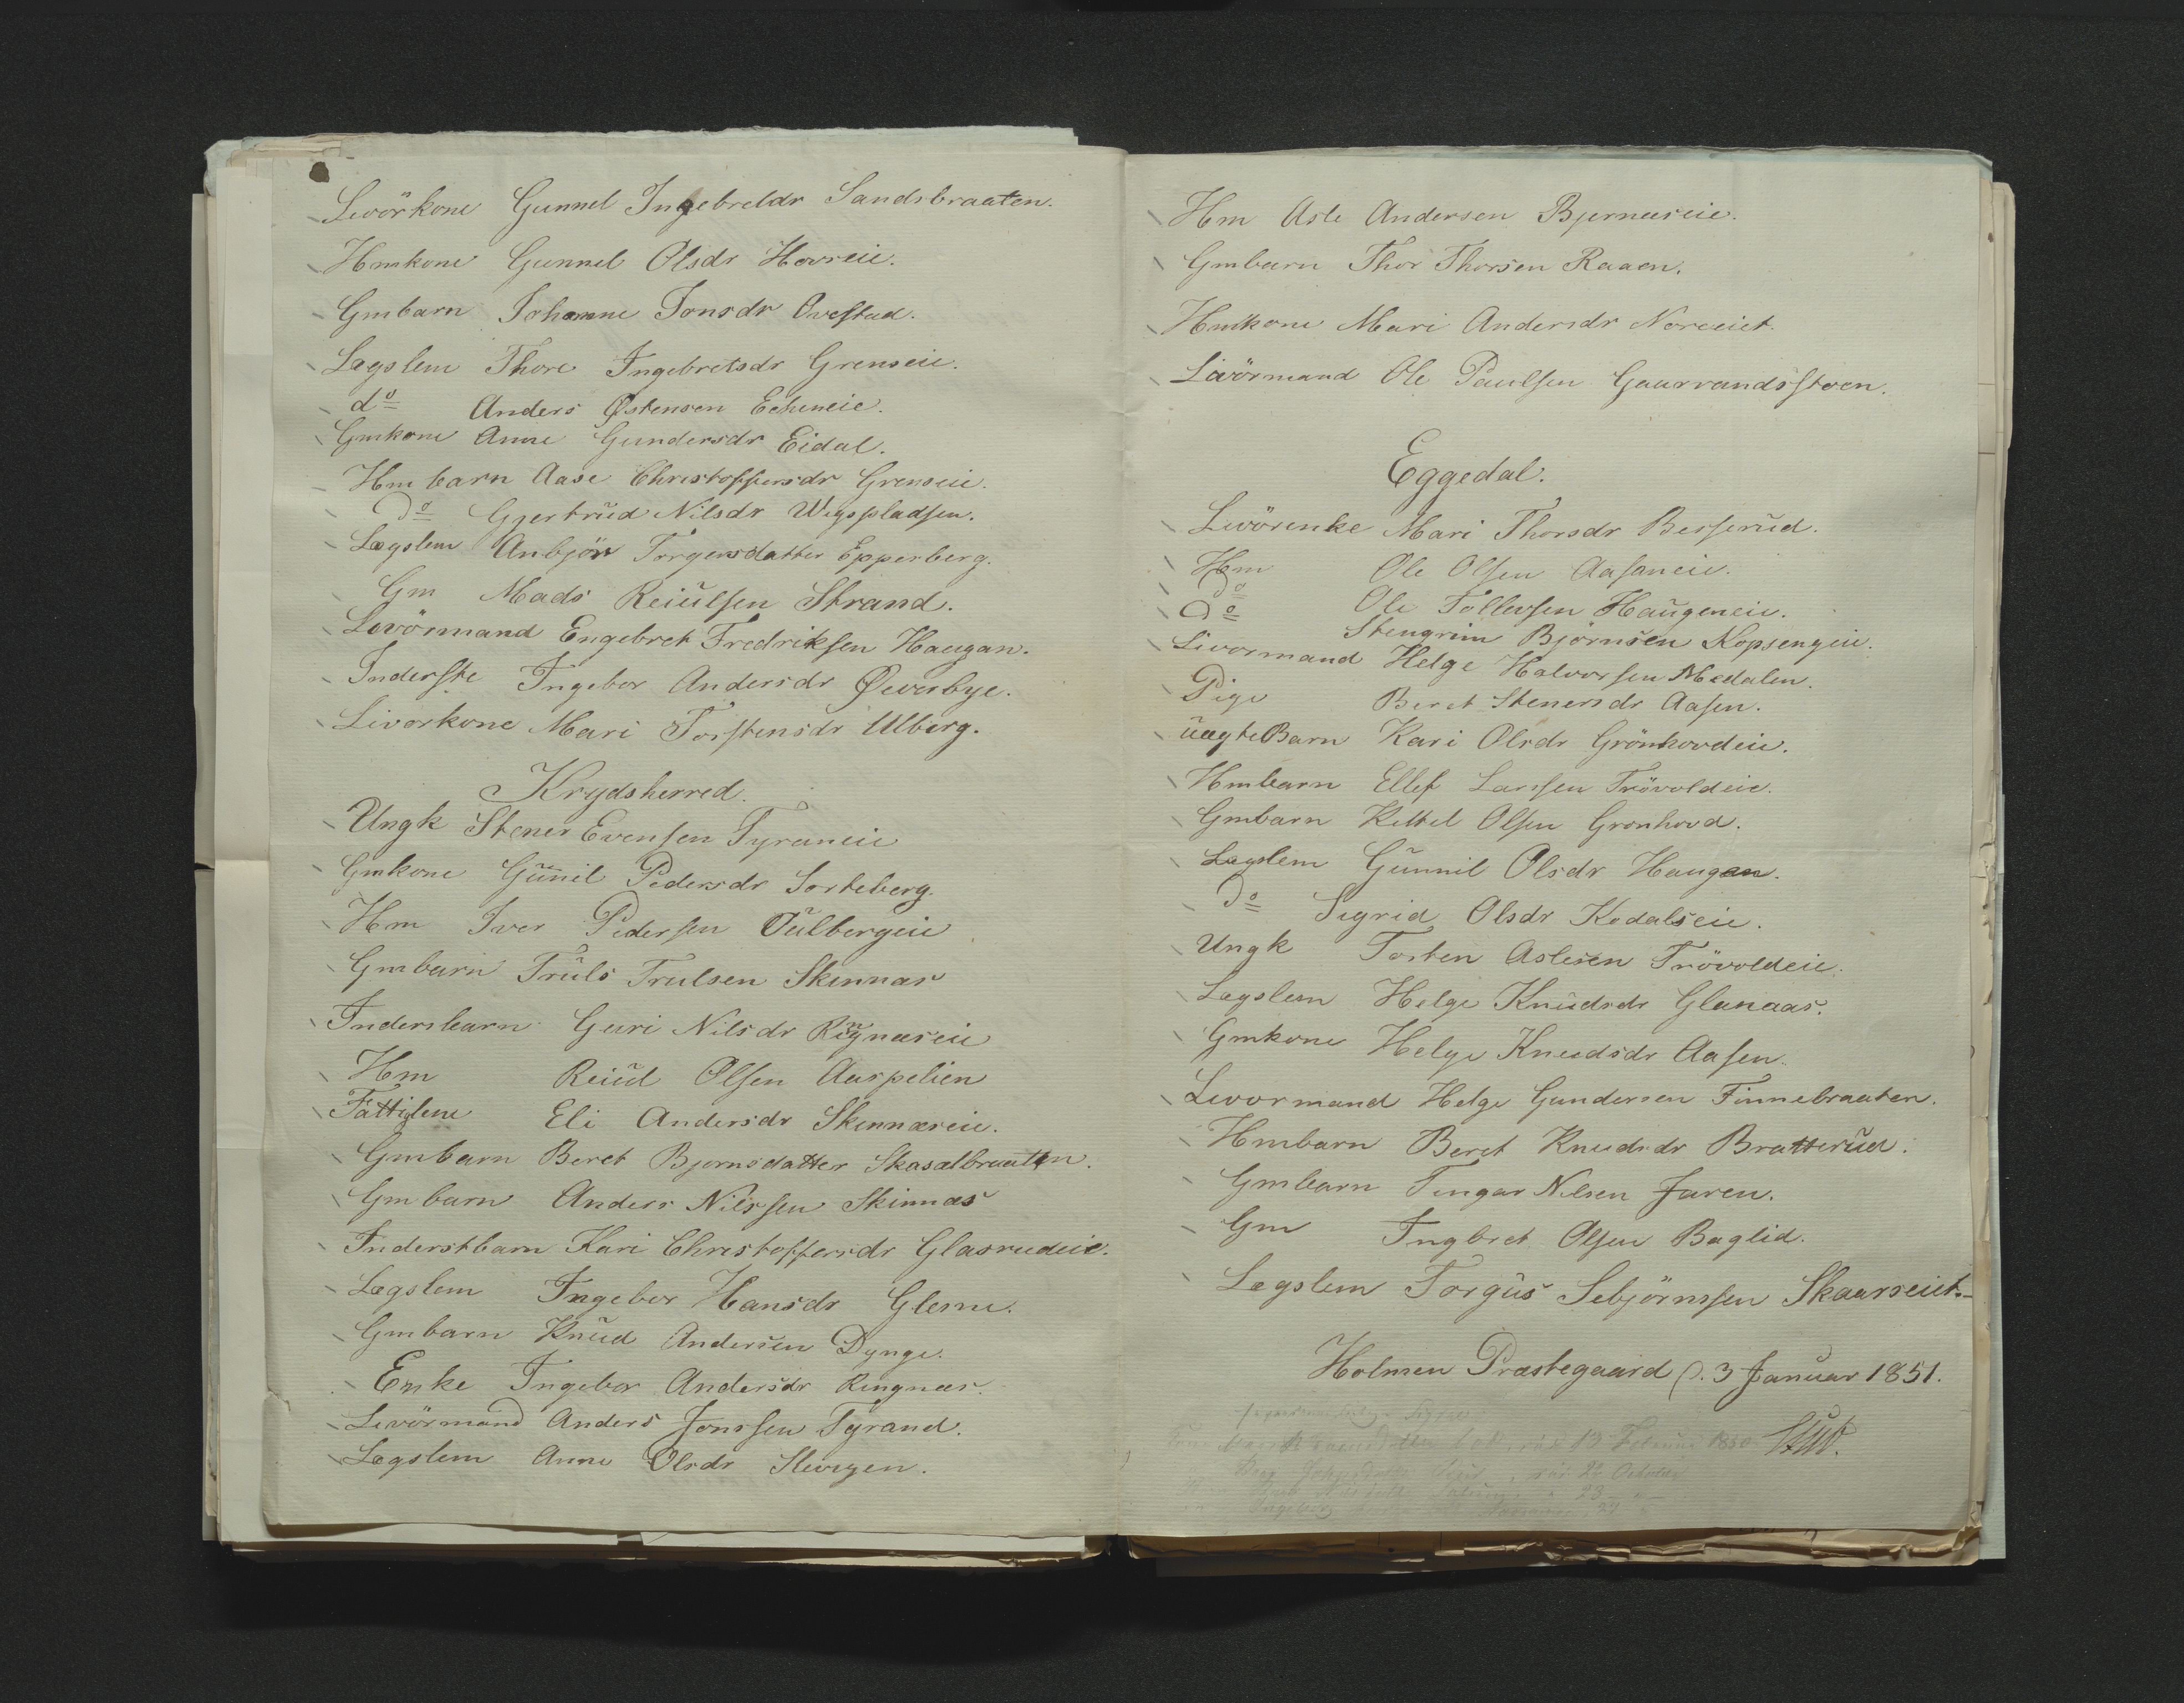 Levörkone Gunnel Ingebreldr Sandsbraaten.
Hmkone Gunnel Olsdr Hovreie.
Gmbarn Johanne Tonsdr Ovestad.
Lægslem Thore Ingebretsdr Grenseie.
do Anders Østensen Echeneie.
Gmkone Anne Gundersdr Eidal.
Hmbarn Aase Christoffersdr Grenseie.
Do Gjertrud Nilsdr Wegspladsen.
Lægslem Anbjör Torgersdatter Epperberg.
Gm Mads Reiulsen Strand.
Levörmand Engebret Fredriksen Haugan.
Inderste Ingebor Andersdr Øeverbye.
Livorkone Mari Torstensdr Ulberg.
Krydsherred.
Ungk Stener Evensen Tyraneie
Gmkone Gunnil Pedersdr Sorteberg.
Hm Iver Pedersen Gulbergeie
Gmbarn Truls Trulsen Skinnæs
Indersbarn Guri Nilsdr Ringnæseie
Hm Reiud Olsen Aaspelien
Fattiglem Eli Andersdr Skennæseie.
Gmbarn Beret Bjornsdatter Skasalbraatten.
Gmbarn Anders Nilssen Skinnæs
Inderstbarn Kari Christoffersdr Glasrudeie.
Lægslem Ingebor Hansdr Glesne.
Gmbarn Knud Andersen Dynge.
Enke Ingebor Andersdr Ringnæs.
Levörmand Anders Jonssen Tyrand.
Lægslem Anne Olsdr Slevigen.
Hm Asle Andersen Bjernæseie.
Gmbarn Thor Thorsen Raaen.
Hmkone Mari Andersdr Noreeiet.
Livörmand Ole Paulsen Gaarvandsstoen.
Eggedal.
Levörenke Mari Thorsdr Besserud.
Hm Ole Olsen Aasaneie.
Do Ole Tollevsen Haugeneie.
Do Stengrim Björnsen Kopsengeie.
Livormand Helge Halvorsen Medalen.
Pige Beret Stenersdr Aasen.
uægteBarn Kari Olsdr Grönhovdeie.
Hmbarn Ellef Larssen Trövoldeie.
Gmbarn Kittel Olsen Gronhovd.
Lægslem Gunnil Olsdr Haugan.
Do Sigrid Olsdr Kodalseie.
Ungk Torsten Aslesen Trövoldeie.
Lægslem Helge Knudsdr Glanaas.
Gmkone Helge Knudsdr Aasen.
Levormand Helge Gundersen Finnebraaten.
Hmbarn Beret Knudsdr Bratterud.
Gmbarn Tengar Nilsen Jaren.
Gm Ingbret Olsen Baglid.
Lægslem Torgus Sebjörnssen Skaarseiet.
Holmen Præstegaard D. 3 Januar 1851.
Stub.